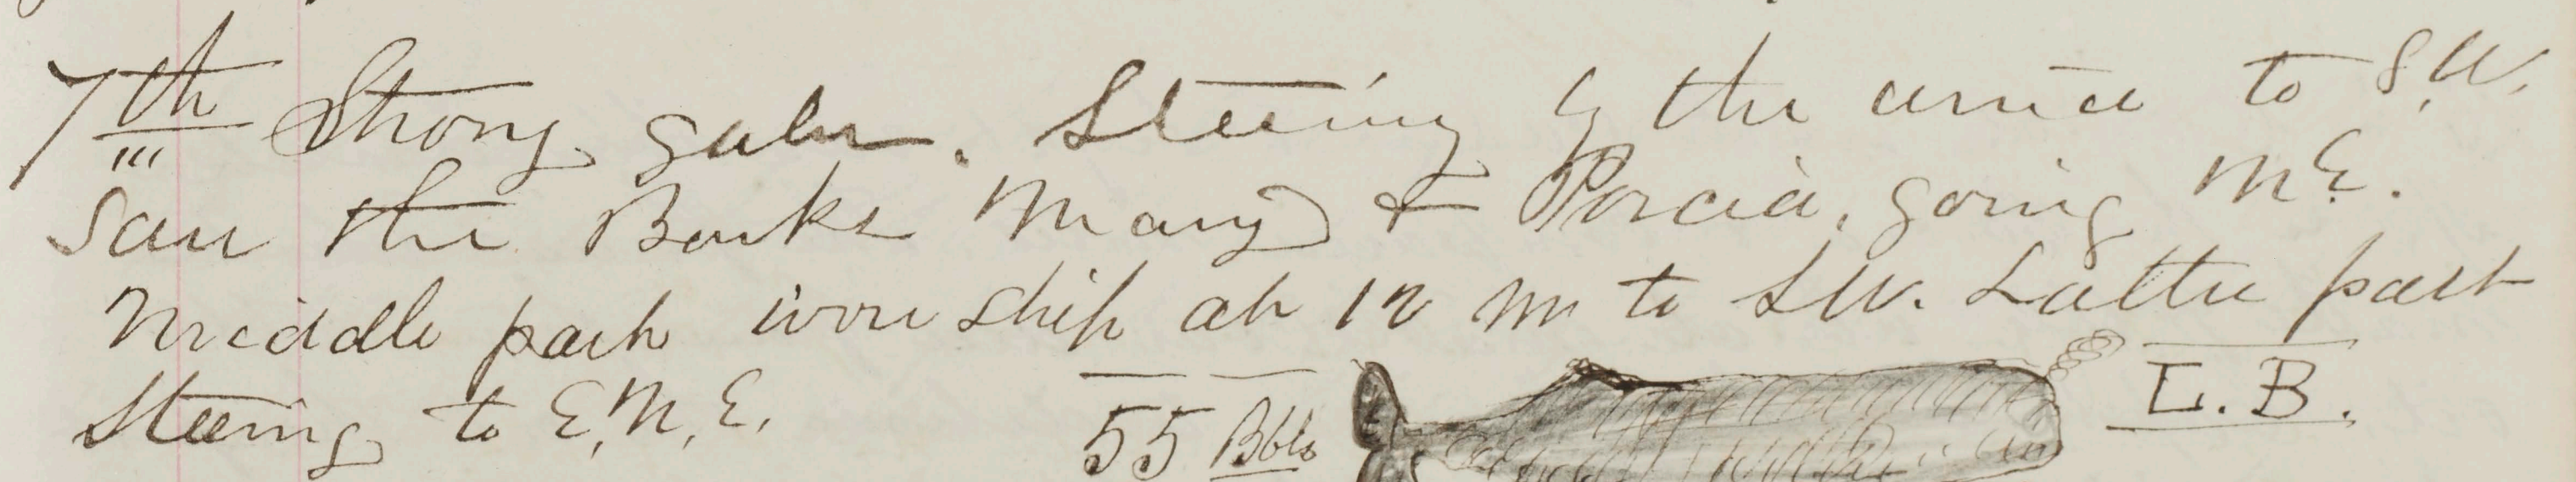 7th Strong gales. Steering by the wind to S.W.
Saw the Barks Mary & Porcia, going N.E.
Middle part wore ship at 12 M to S.W. Latter part
Steering to E.N.E. 55 Bbls L.B.